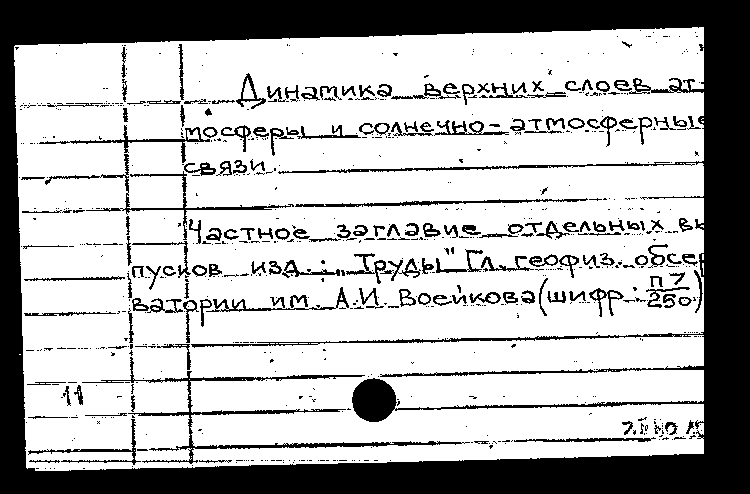 Динамика верхних слоев ат-
мосферы и солнечно-атмосферные
связи.
Частное заглавие отдельных вы
пусков изд.: „Труды" Гл. геофиз. обсер
ватории им. А.И. Воейкова (шифр: П7/250)
11